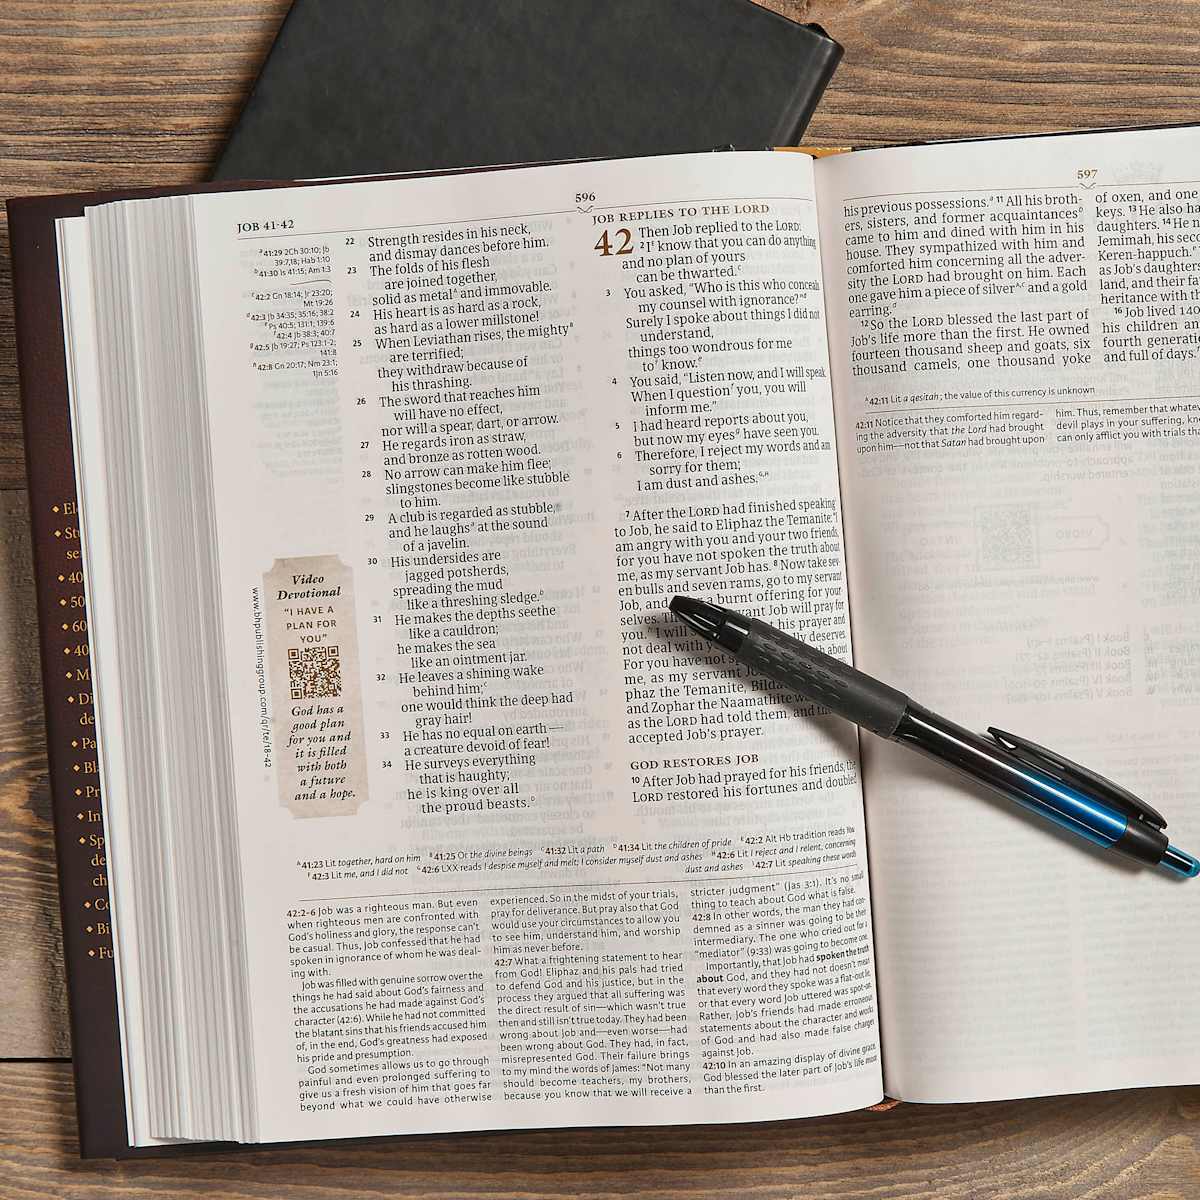 596
JOB 41·42
ᴬ41:29 2Ch 30:10; Jb
39:7,18; Hab 1:10
41:30 Is 41:15; Am 1:3
42:2 Gn 18:14; Jr 23:20;
Mt 19:26
42:3 Jb 34:35; 35:16; 38:2
Ps 40:5; 131:1; 139:6
42:4 Jb 38:3; 40:7
42:5 Jb 19:27; Ps 123:1-2;
141:8
42:8 Gn 20:17; Nm 23:1;
1Jn 5:16
Video
Devotional
"I HAVE A
PLAN FOR
YOU"
God has a
good plan
for you and
it is filled
with both
a future
and a hope.
www.bhpublishinggroup.com/qr/te/18-42
22 Strength resides in his neck,
and dismay dances before him.
23 The folds of his flesh
are joined together,
solid as metalᴬ and immovable.
24 His heart is as hard as a rock,
as hard as a lower millstone!
25 When Leviathan rises, the mightyᴮ
are terrified;
they withdraw because of
his thrashing.
26 The sword that reaches him
will have no effect,
nor will a spear, dart, or arrow.
27 He regards iron as straw,
and bronze as rotten wood.
28 No arrow can make him flee;
slingstones become like stubble
to him.
29 A club is regarded as stubble,
and he laughs at the sound
of a javelin.
30 His undersides are
jagged potsherds,
spreading the mud
like a threshing sledge.
31 He makes the depths seethe
like a cauldron;
he makes the sea
like an ointment jar.
32 He leaves a shining wake
behind him;
one would think the deep had
gray hair!
33 He has no equal on earth—
a creature devoid of fear!
34 He surveys everything
that is haughty;
he is king over all
the proud beasts.ᴰ
JOB REPLIES TO THE LORD
42 Then Job replied to the LORD:
2 I know that you can do anything
and no plan of yours
can be thwarted.
3 You asked, "Who is this who conceals
my counsel with ignorance?"
Surely I spoke about things I did not
understand,
things too wondrous for me
to know.
4 You said, "Listen now, and I will speak.
When I question you, you will
inform me."
5 I had heard reports about you,
but now my eyes have seen you.
6 Therefore, I reject my words and am
sorry for them;
I am dust and ashes.ᴳ,ᴴ
7 After the LORD had finished speaking
to Job, he said to Eliphaz the Temanite: "I
am angry with you and your two friends,
for you have not spoken the truth about
me, as my servant Job has. 8 Now take sev-
en bulls and seven rams, go to my servant
Job, and a burnt offering for your-
selves. vant Job will pray for
you." I will his prayer and
not deal with y lly deserves.
For you have not sp th about
me, as my servant Jo
phaz the Temanite, Bilda
and Zophar the Naamathite w
as the LORD had told them, and the
accepted Job's prayer.
GOD RESTORES JOB
10 After Job had prayed for his friends, the
LORD restored his fortunes and double
ᴬ41:23 Lit together, hard on him ᴮ41:25 Or the divine beings ᶜ41:32 Lit a path ᴰ41:34 Lit the children of pride ᴱ42:2 Alt Hb tradition reads You
ᶠ42:3 Lit me, and I did not ᴳ42:6 LXX reads I despise myself and melt; I consider myself dust and ashes ᴴ42:6 Lit I reject and I relent, concerning
dust and ashes ᴵ42:7 Lit speaking these words
42:2-6 Job was a righteous man. But even
when righteous men are confronted with
God's holiness and glory, the response can't
be casual. Thus, Job confessed that he had
spoken in ignorance of whom he was deal-
ing with.
Job was filled with genuine sorrow over the
things he had said about God's fairness and
the accusations he had made against God's
character (42:6). While he had not committed
the blatant sins that his friends accused him
of, in the end, God's greatness had exposed
his pride and presumption.
God sometimes allows us to go through
painful and even prolonged suffering to
give us a fresh vision of him that goes far
beyond what we could have otherwise
experienced. So in the midst of your trials,
pray for deliverance. But pray also that God
would use your circumstances to allow you
to see him, understand him, and worship
him as never before.
42:7 What a frightening statement to hear
from God! Eliphaz and his pals had tried
to defend God and his justice, but in the
process they argued that all suffering was
the direct result of sin—which wasn't true
then and still isn't true today. They had been
wrong about Job and—even worse—had
been wrong about God. They had, in fact,
misrepresented God. Their failure brings
to my mind the words of James: "Not many
should become teachers, my brothers,
because you know that we will receive a
stricter judgment" (Jas 3:1). It's no small
thing to teach about God what is false.
42:8 In other words, the man they had con-
demned as a sinner was going to be their
intermediary. The one who cried out for a
"mediator" (9:33) was going to become one.
Importantly, that Job had spoken the truth
about God, and they had not doesn't mean
that every word they spoke was a flat-out lie,
or that every word Job uttered was spot-on.
Rather, Job's friends had made erroneous
statements about the character and works
of God and had also made false charges
against Job.
42:10 In an amazing display of divine grace,
God blessed the later part of Job's life more
than the first.
597
his previous possessions. 11 All his broth-
ers, sisters, and former acquaintances
came to him and dined with him in his
house. They sympathized with him and
comforted him concerning all the adver-
sity the LORD had brought on him. Each
one gave him a piece of silver and a gold
earring.
12 So the LORD blessed the last part of
Job's life more than the first. He owned
fourteen thousand sheep and goats, six
thousand camels, one thousand yoke
of oxen, and one
keys. 13 He also ha
daughters. 14 He n
Jemimah, his seco
Keren-happuch.
as Job's daughters
land, and their fa
heritance with th
16 Job lived 140
his children an
fourth generati
and full of days.
ᴬ42:11 Lit a qesitah; the value of this currency is unknown
42:11 Notice that they comforted him regard-
ing the adversity that the Lord had brought
upon him—not that Satan had brought upon
him. Thus, remember that whatev
devil plays in your suffering, kn
can only afflict you with trials tha